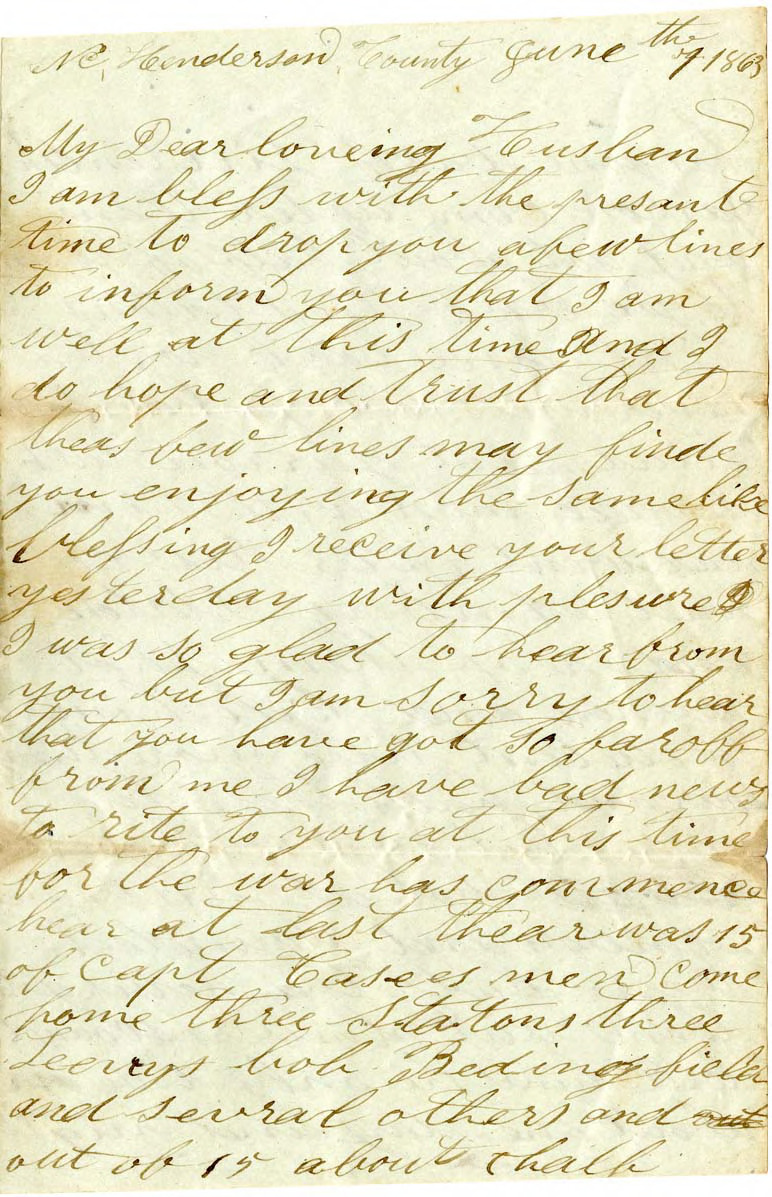 NC, Henderson County June the 9 1863
My Dear loveing Husban
I am bless with the presant
time to drop you a few lines
to inform you that I am
well at this time And I
do hope and trust that
theas few lines may finde
you enjoying the same like
blessing I receive your letter
yesterday with plesure I
I was so glad to hear from
you but I am sorry to hear
that you have got so far off
from me I have bad news
to rite to you at this time
for the war has commence
hear at last thear was 15
of Capt Casees men come
home three Statons three
bob Bedingfield
and sevral others and out
out of 15 about